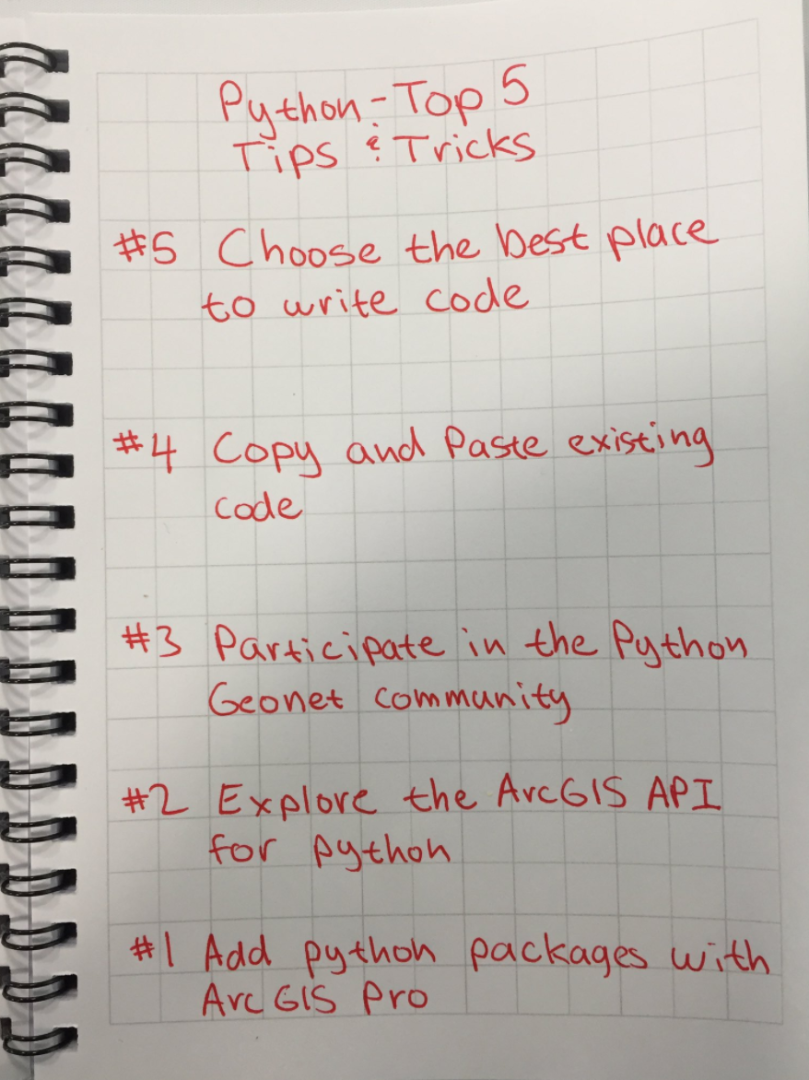 Python - Top 5
Tips & Tricks
#5 Choose the best place
to write code
#4 Copy and Paste existing
code
#3 Participate in the Python
Geonet community
#2 Explore the ArcGIS API
for python
#1 Add python packages with
ArcGIS Pro